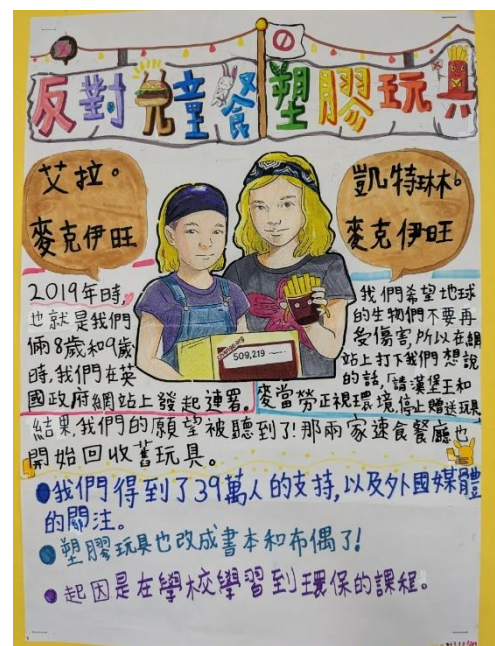 反對兒童餐塑膠玩具
艾拉。
麥克伊旺
凱特琳。
麥克伊旺
509,219
2019年時,
也就是我們
倆8歲和9歲
時,我們在英
國政府網站上發起連署。
我們希望地球
的生物們不要再
受傷害,所以在網
站上打下我們想說
的話,「請漢堡王和
麥當勞正視環境,停止贈送玩具」
結果,我們的願望被聽到了!那兩家速食餐廳也
開始回收舊玩具。
●我們得到了39萬人的支持,以及外國媒體
的關注。
●塑膠玩具也改成書本和布偶了!
●起因是在學校學習到環保的課程。